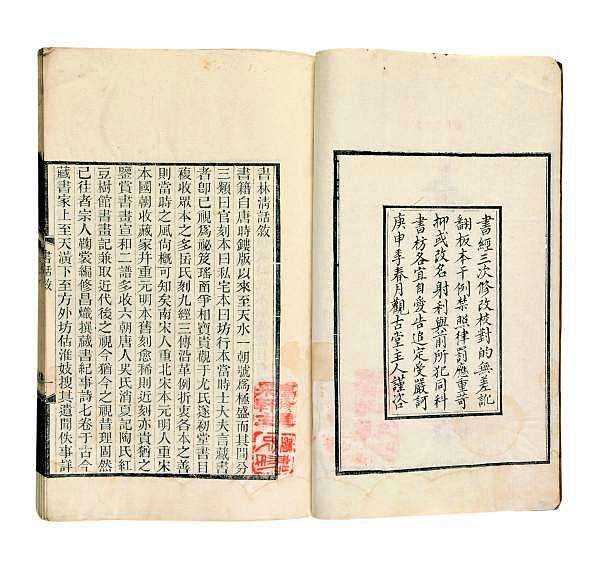 書經三次修改校對的無差訛
翻板本干例禁照律罰應重苛
抑或改名射利與前所犯同科
書枋各宜自愛告追定受嚴訶
庚申季春月觀古堂主人謹咨
書林清話敘
書籍自唐時鏤版以來至天水一朝號為極盛而其間分
三類曰官刻本曰私宅本曰坊行本當時士大夫言藏書
者卽已視為祕笈瑤函爭相寶貴觀于尤氏遂初堂書目
複收眾本之多岳氏刻九經三傳沿革例折衷各本之善
則當時之風尚概可知矣南宋人重北宋本元明人重宋
本國朝收藏家并重元明本舊刻愈稀則近刻亦貴猶之
鑒賞書畫宣和二譜多收六朝唐人吳氏消夏記陶氏紅
豆樹館書畫記兼取近代後之視今猶今之視昔理固然
已往者宗人鞠裳編修昌熾撰藏書紀事詩七卷于古今
藏書家上至天潢下至方外坊估淮妓搜其遺聞佚事詳
書話敘
一